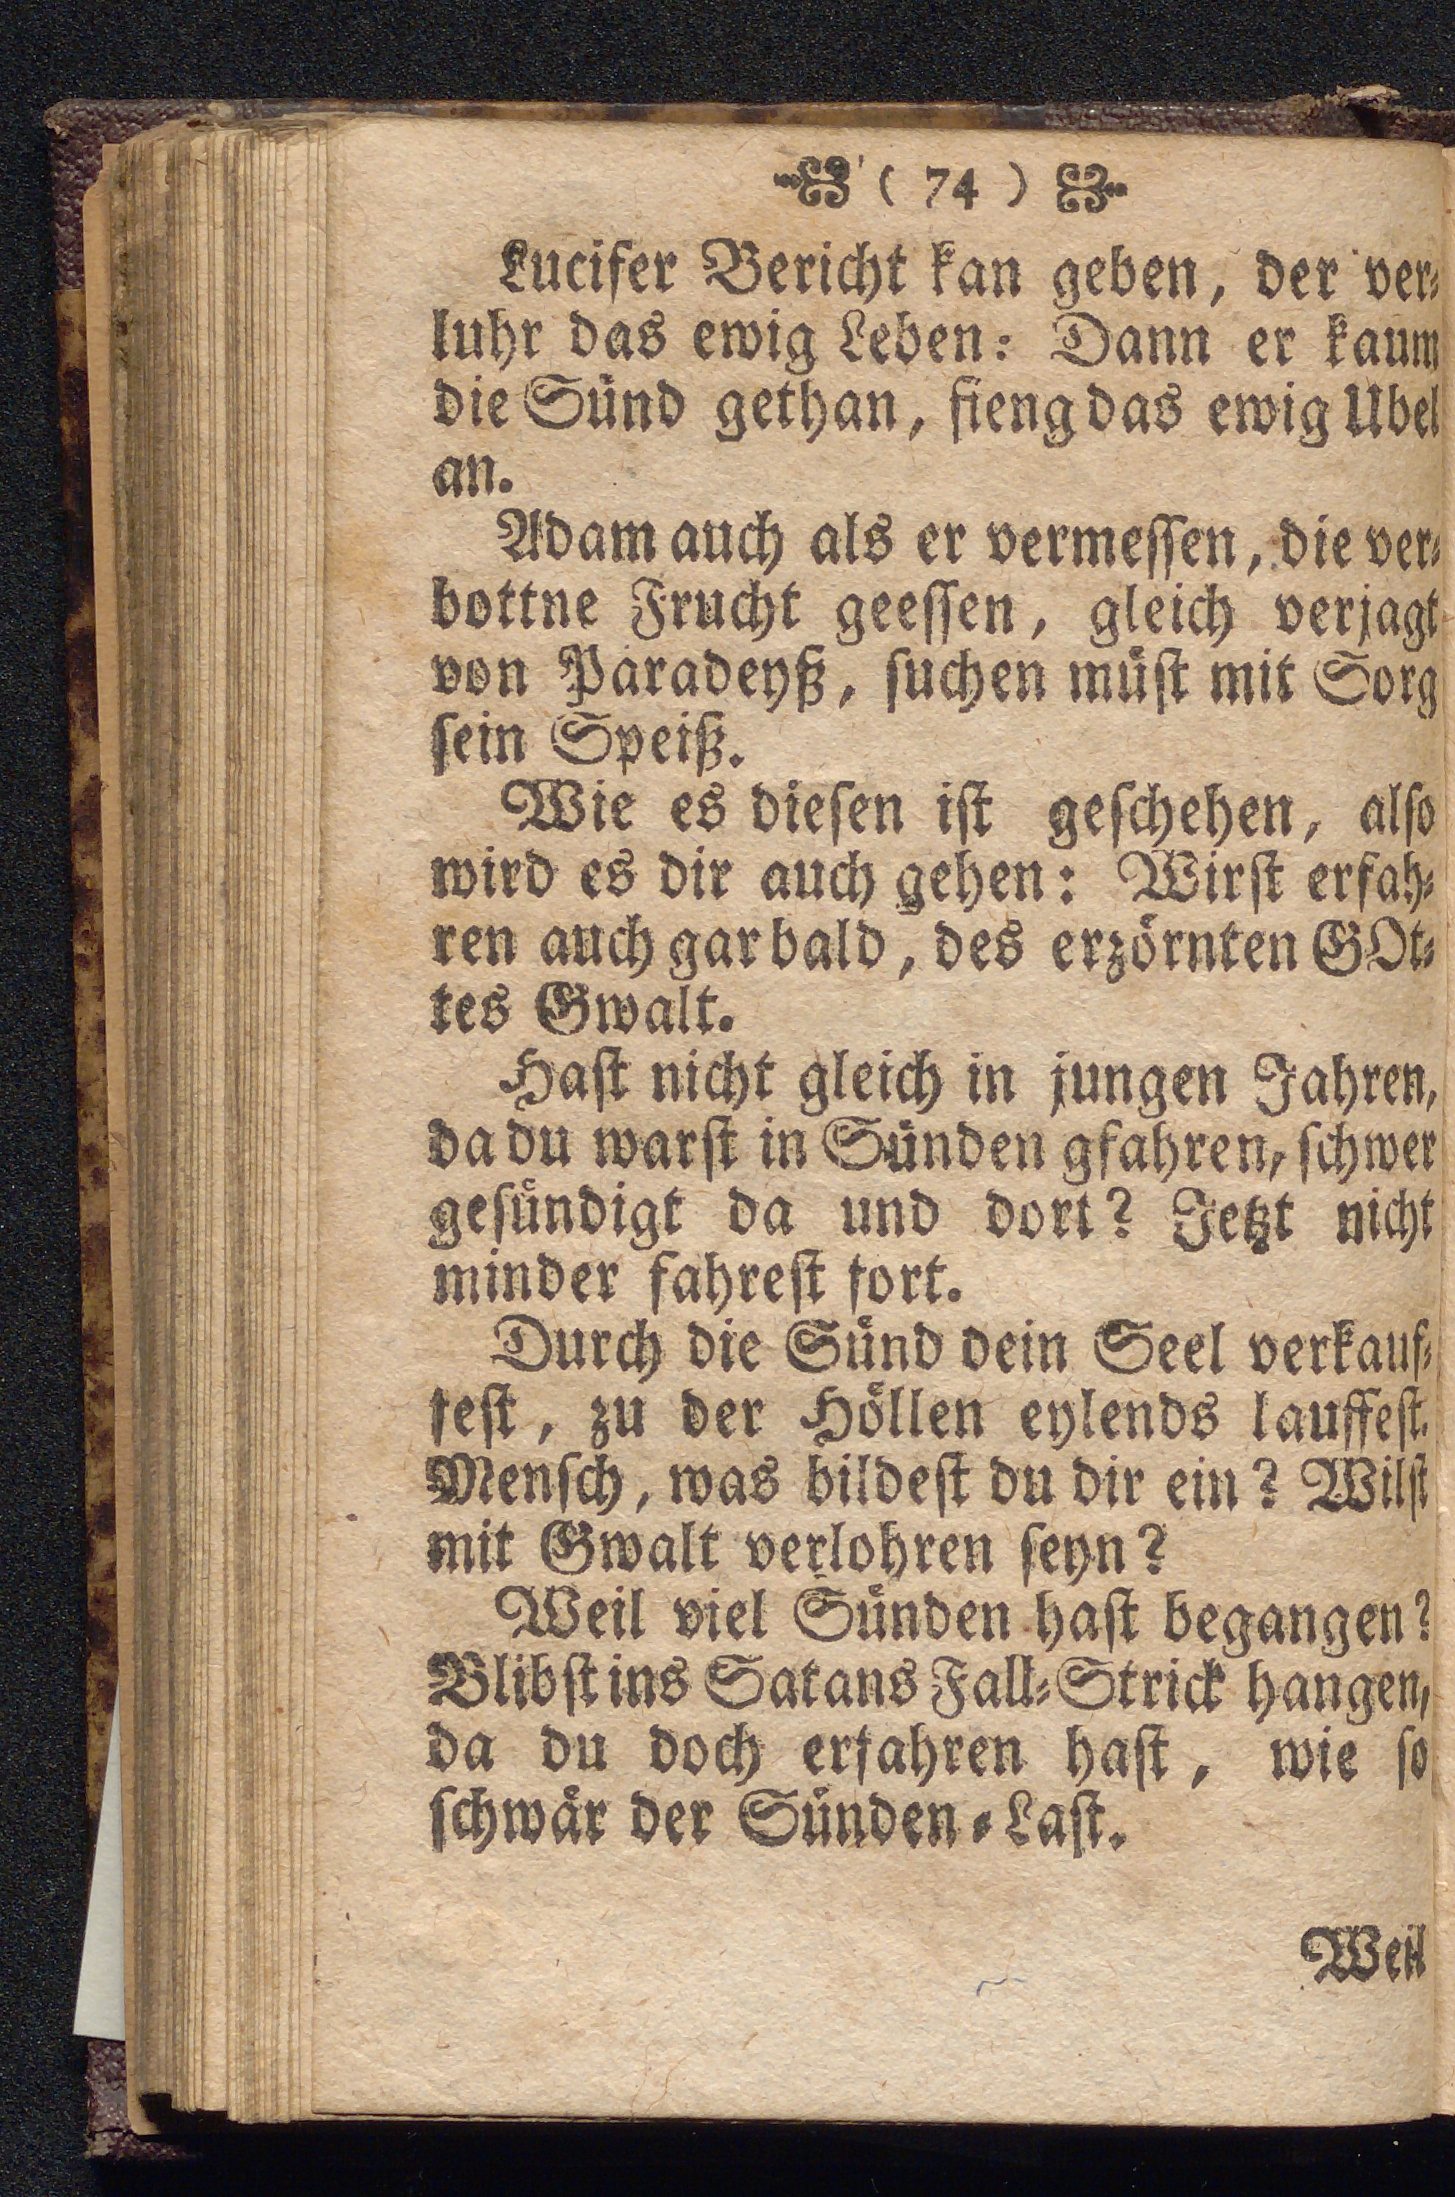 ( 74 )
Lucifer Bericht kan geben, der ver-
luhr das ewig Leben: Dann er kaum
die Sünd gethan, fieng das ewig Ubel
an.
Adam auch als er vermessen, die ver-
bottne Frucht geessen, gleich verjagt
von Paradeyß, suchen müst mit Sorg
sein Speiß.
Wie es diesen ist geschehen, also
wird es dir auch gehen: Wirst erfah-
ren auch gar bald, des erzörnten GOt-
tes Gwalt.
Hast nicht gleich in jungen Jahren,
da du warst in Sünden gfahren, schwer
gesündigt da und dort? Jetzt nicht
minder fahrest fort.
Durch die Sünd dein Seel verkauf-
fest, zu der Höllen eylends lauffest.
Mensch, was bildest du dir ein? Wilst
mit Gwalt verlohren seyn?
Weil viel Sünden hast begangen?
Blibst ins Satans Fall-Strick hangen,
da du doch erfahren hast, wie so
schwär der Sünden-Last.
Weil